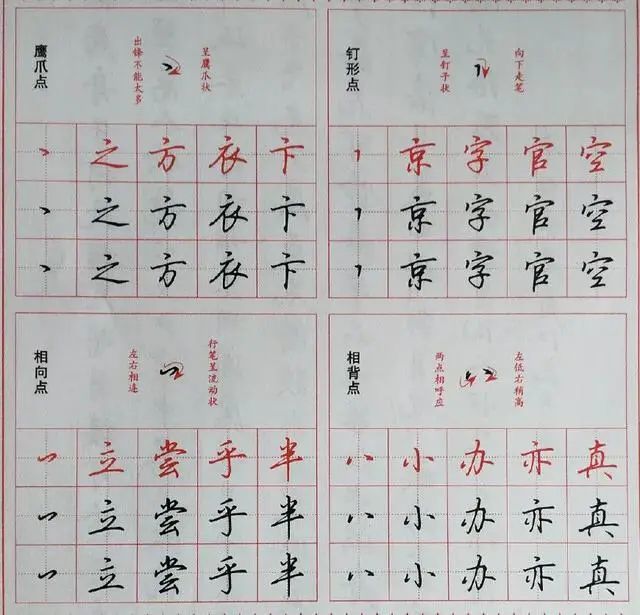 鹰爪点
出锋不能太多
呈鹰爪状
丶 之 方 衣 卞
丶 之 方 衣 卞
丶 之 方 衣 卞
钉形点
呈钉子状
向下走笔
京 字 官 空
京 字 官 空
京 字 官 空
相向点
左右相连
行笔呈流动状
立 尝 乎 半
立 尝 乎 半
立 尝 乎 半
相背点
两点相呼应
左低右稍高
八 小 办 亦 真
八 小 办 亦 真
八 小 办 亦 真